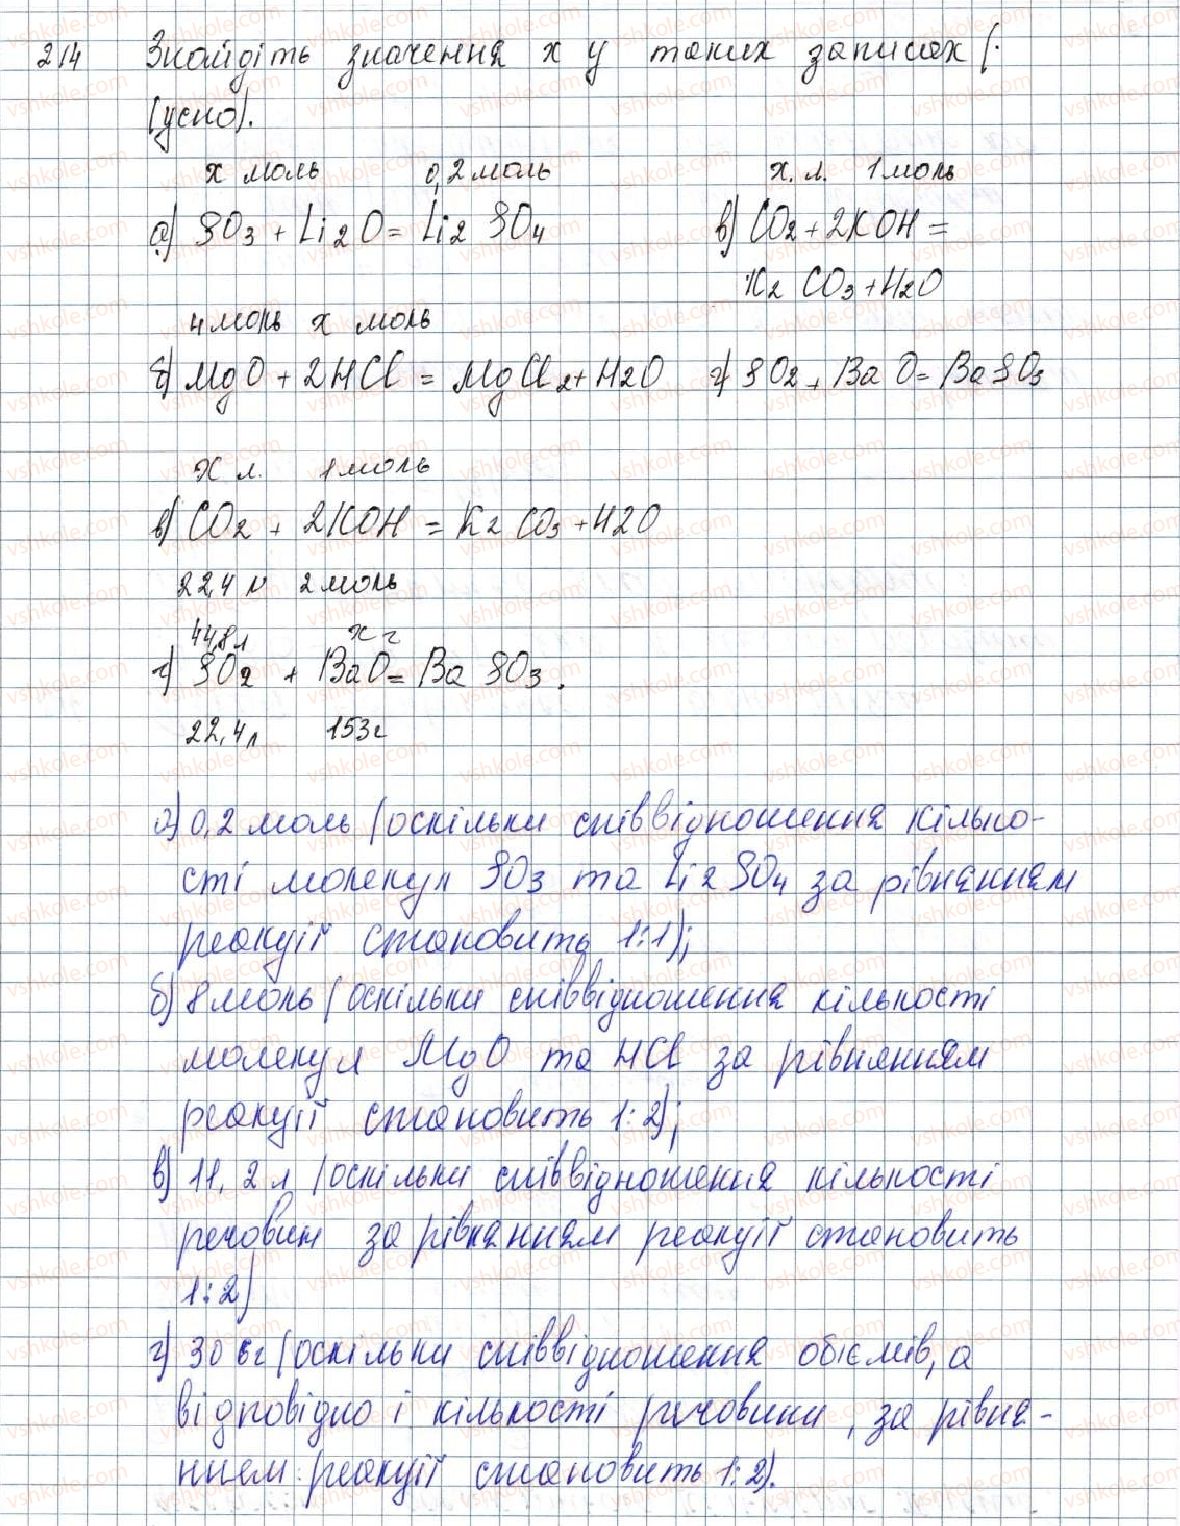 214 Знайдіть значення х у таких записах (.
(усно).
х моль 0,2 моль х. л. 1 моль
а) SO3 + Li2O = Li2SO4 в) CO2 + 2KOH =
K2CO3 + H2O
4 моль х моль
б) MgO + 2HCl = MgCl2 + H2O г) SO2 + BaO = BaSO3
Х л. 1 моль
в) CO2 + 2KOH = K2CO3 + H2O
22,4 л 2 моль
44,8 л х г
г) SO2 + BaO = BaSO3.
22,4 л 153 г
а) 0,2 моль (оскільки співвідношення кілько-
сті молекул SO3 та Li2SO4 за рівнянням
реакції становить 1:1);
б) 8 моль (оскільки співвідношення кількості
молекул MgO та HCl за рівнянням
реакції становить 1:2);
в) 11,2 л (оскільки співвідношення кількості
речовин за рівнянням реакції становить
1:2)
г) 306 г (оскільки співвідношення обіємів, а
відповідно і кількості речовини, за рівня-
нням реакції становить 1:2).